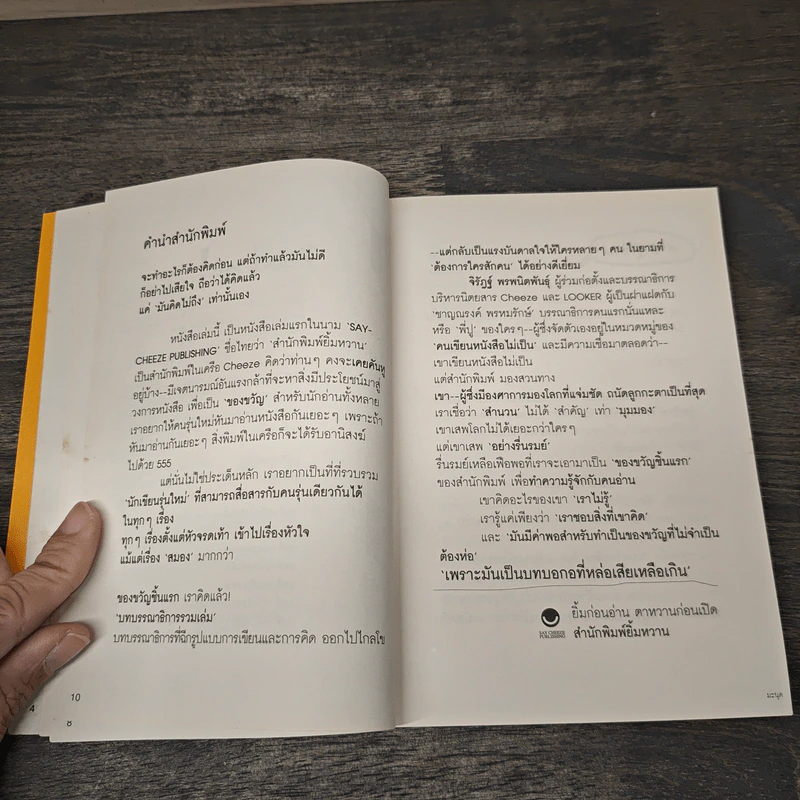 คำนำสำนักพิมพ์
จะทำอะไรก็ต้องคิดก่อน แต่ถ้าทำแล้วมันไม่ดี
ก็อย่าไปเสียใจ ถือว่าได้คิดแล้ว
แค่ 'มันคิดไม่ถึง' เท่านั้นเอง
หนังสือเล่มนี้ เป็นหนังสือเล่มแรกในนาม 'SAY-
CHEEZE PUBLISHING' ชื่อไทยว่า 'สำนักพิมพ์ยิ้มหวาน'
เป็นสำนักพิมพ์ในเครือ Cheeze คิดว่าท่านๆ คงจะเคยคันหู
อยู่บ้าง--มีเจตนารมณ์อันแรงกล้าที่จะหาสิ่งมีประโยชน์มาสู่
วงการหนังสือ เพื่อเป็น 'ของขวัญ' สำหรับนักอ่านทั้งหลาย
เราอยากให้คนรุ่นใหม่หันมาอ่านหนังสือกันเยอะๆ เพราะถ้า
หันมาอ่านกันเยอะๆ สิ่งพิมพ์ในเครือก็จะได้รับอานิสงฆ์
ไปด้วย 555
แต่นั่นไม่ใช่ประเด็นหลัก เราอยากเป็นที่ที่รวบรวม
'นักเขียนรุ่นใหม่' ที่สามารถสื่อสารกับคนรุ่นเดียวกันได้
ในทุกๆ เรื่อง
ทุกๆ เรื่องตั้งแต่หัวจรดเท้า เข้าไปเรื่องหัวใจ
แม้แต่เรื่อง 'สมอง' มากกว่า
ของขวัญชิ้นแรก เราคิดแล้ว!
'บทบรรณาธิการรวมเล่ม'
บทบรรณาธิการที่ฉีกรูปแบบการเขียนและการคิด ออกไปไกลโข
10
4
8
--แต่กลับเป็นแรงบันดาลใจให้ใครหลายๆ คน ในยามที่
'ต้องการใครสักคน' ได้อย่างดีเยี่ยม
จิรัฏฐ์ พรพนิตพันธุ์ ผู้ร่วมก่อตั้งและบรรณาธิการ
บริหารนิตยสาร Cheeze และ LOOKER ผู้เป็นฝาแฝดกับ
'ชาญณรงค์ พรหมรักษ์' บรรณาธิการคนแรกนั่นแหละ
หรือ 'พี่ปู' ของใครๆ--ผู้ซึ่งจัดตัวเองอยู่ในหมวดหมู่ของ
'คนเขียนหนังสือไม่เป็น' และมีความเชื่อมาตลอดว่า--
เขาเขียนหนังสือไม่เป็น
แต่สำนักพิมพ์ มองสวนทาง
เขา--ผู้ซึ่งมีองศาการมองโลกที่แจ่มชัด ถนัดลูกกะตาเป็นที่สุด
เราเชื่อว่า 'สำนวน' ไม่ได้ 'สำคัญ' เท่า 'มุมมอง'
เขาเสพโลกไม่ได้เยอะกว่าใครๆ
แต่เขาเสพ 'อย่างรื่นรมย์'
รื่นรมย์เหลือเฟือพอที่เราจะเอามาเป็น 'ของขวัญชิ้นแรก'
ของสำนักพิมพ์ เพื่อทำความรู้จักกับคนอ่าน
เขาคิดอะไรของเขา 'เราไม่รู้'
เรารู้แค่เพียงว่า 'เราชอบสิ่งที่เขาคิด'
และ 'มันมีค่าพอสำหรับทำเป็นของขวัญที่ไม่จำเป็น
ต้องห่อ'
'เพราะมันเป็นบทบอกอที่หล่อเสียเหลือเกิน'
SAY CHEEZE
PUBLISHING
ยิ้มก่อนอ่าน ตาหวานก่อนเปิด
สำนักพิมพ์ยิ้มหวาน
มะนุด